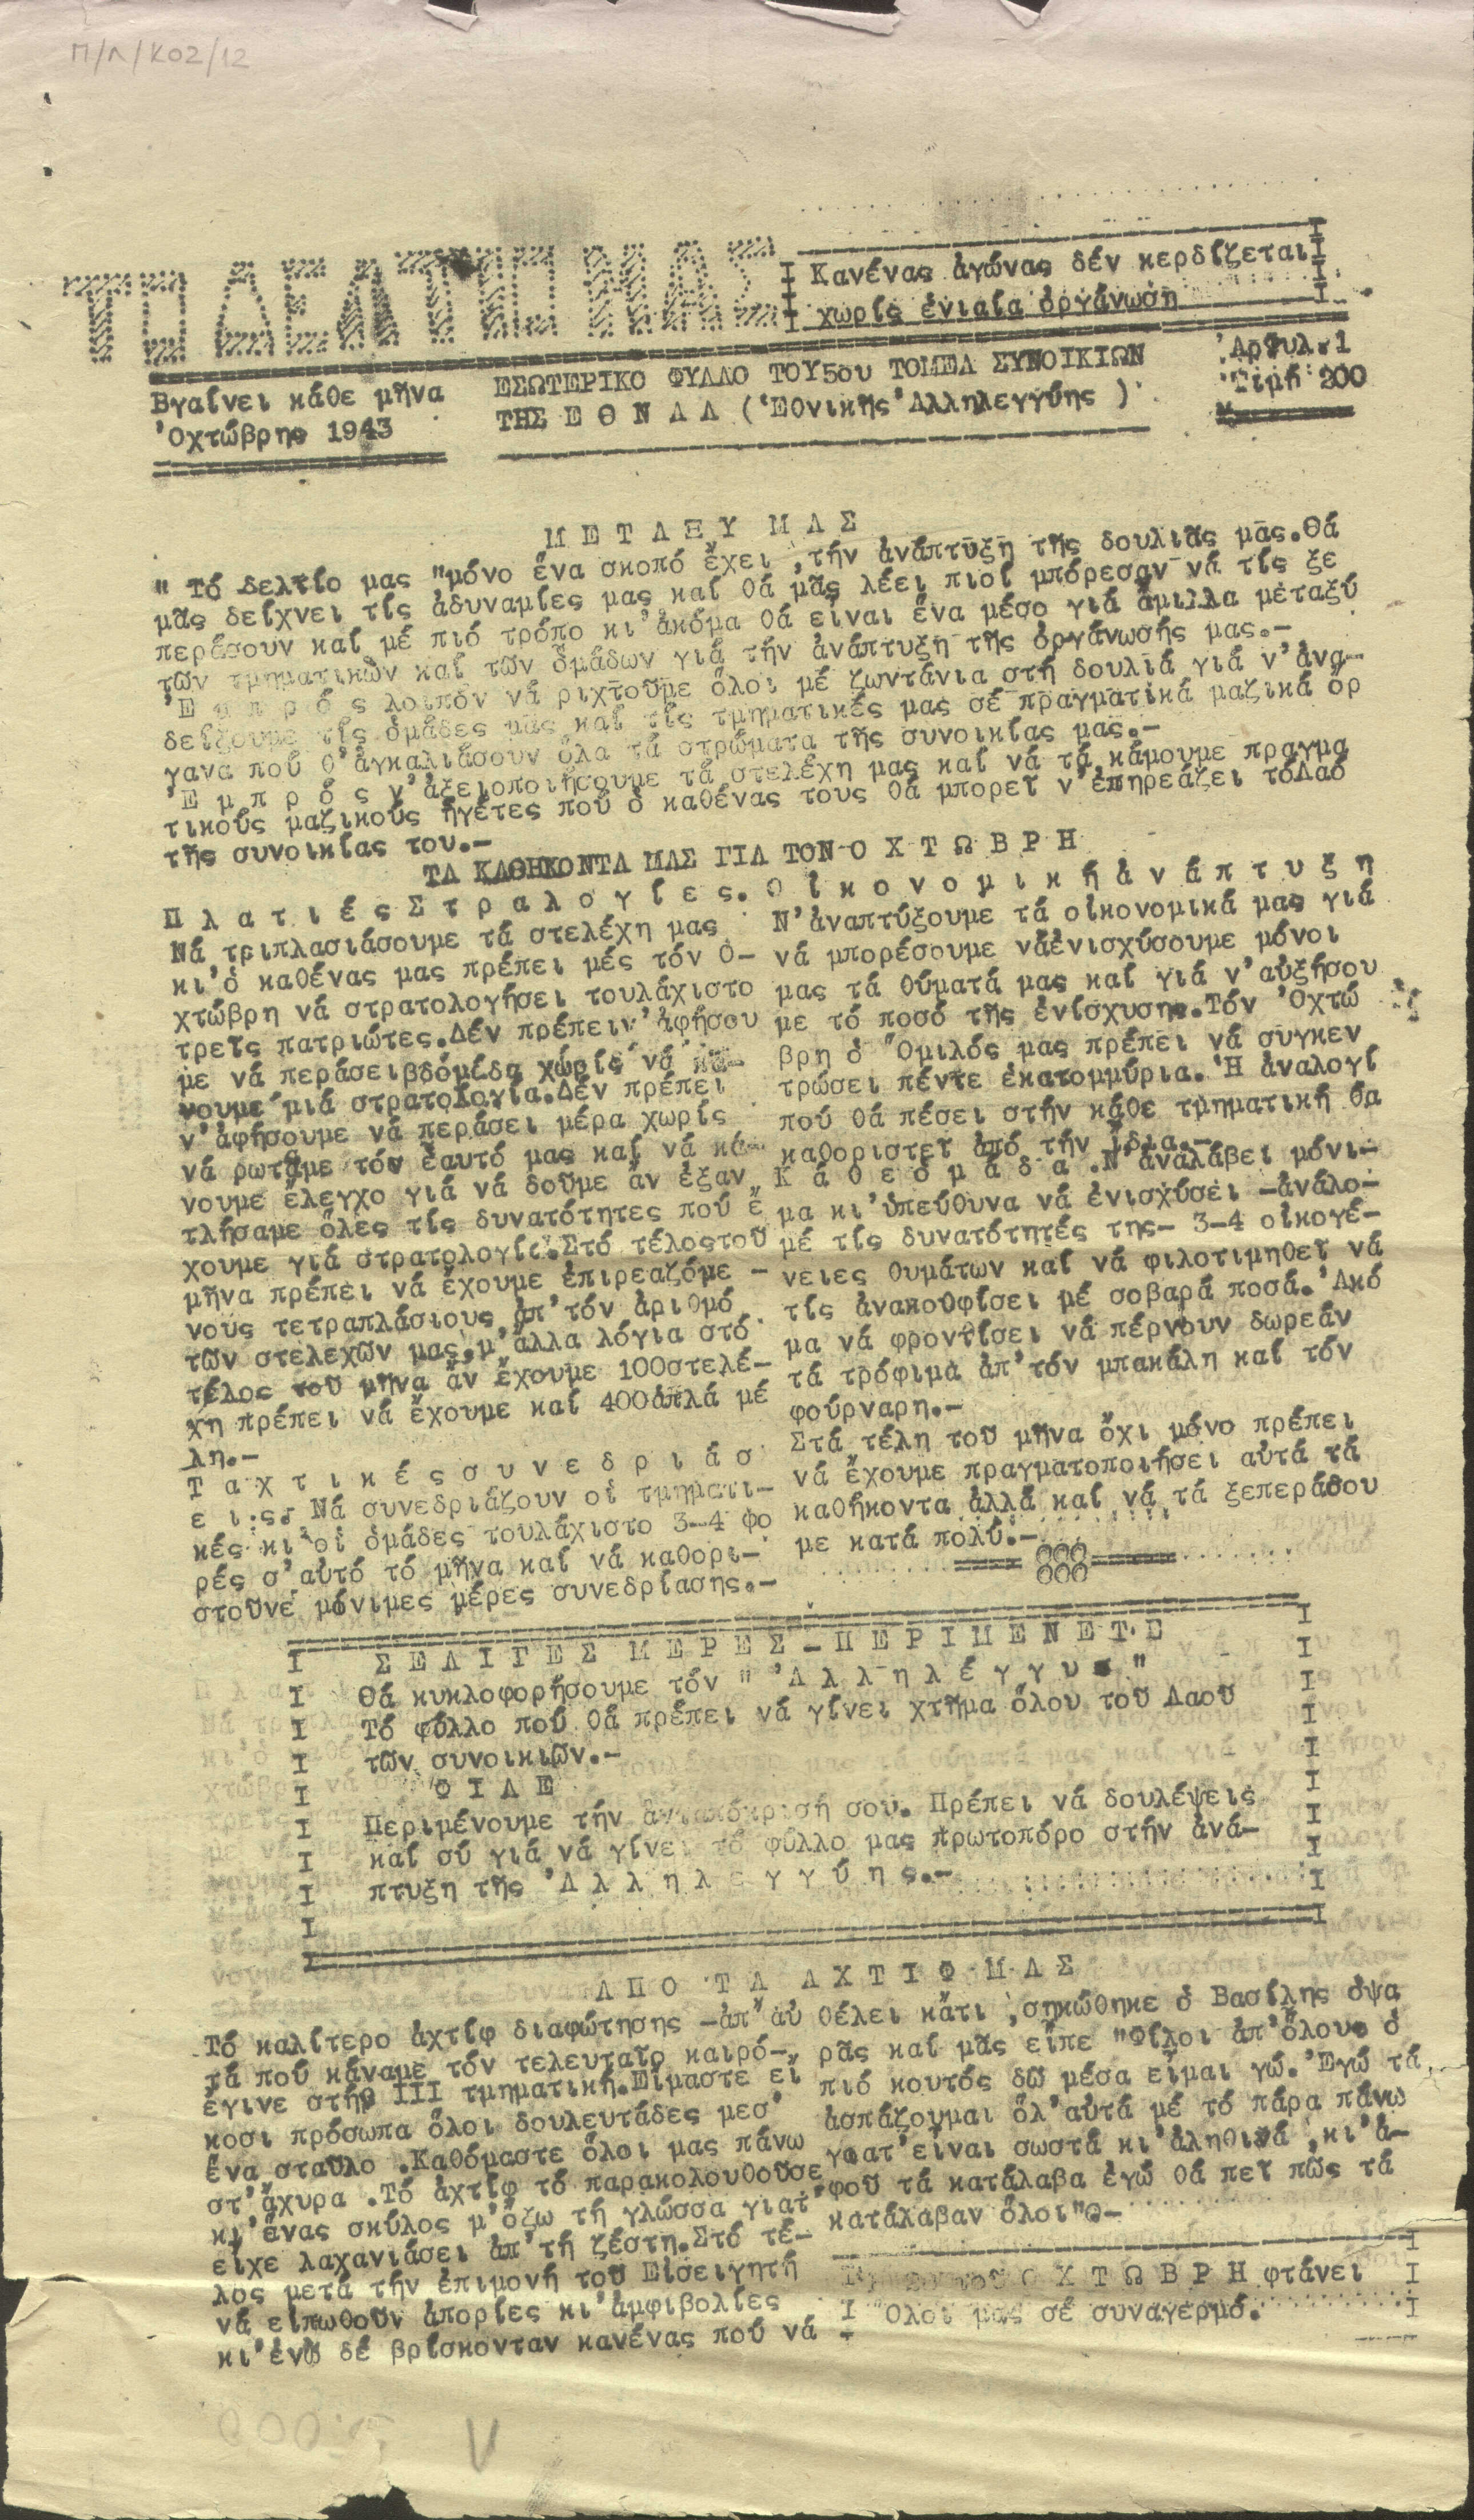 Π/Λ/Κ02/12
ΤΟ ΔΕΛΤΙΟ ΜΑΣ
Κανένας ἀγώνας δέν κερδίζεται
χωρίς ἑνιαία ὀργάνωση
Βγαίνει κάθε μῆνα
Ὀχτώβρης 1943
ΕΣΩΤΕΡΙΚΟ ΦΥΛΛΟ ΤΟΥ 5ου ΤΟΜΕΑ ΣΥΝΟΙΚΙΩΝ
ΤΗΣ Ε Θ Ν Α Λ (Ἐθνικῆς Ἀλληλεγγύης )
Ἀρ.Φυλ.1
Τιμή 200
Μ Ε Τ Α Ξ Υ Μ Α Σ
" Τό δελτίο μας "μόνο ἕνα σκοπό ἔχει ,τήν ἀνάπτυξη τῆς δουλιᾶς μας.Θά
μᾶς δείχνει τίς ἀδυναμίες μας καί θά μᾶς λέει πιοί μπόρεσαν νά τίς ξε
περάσουν καί μέ πιό τρόπο κι'ἀκόμα θά εἶναι ἕνα μέσο γιά ἅμιλλα μεταξύ
τῶν τμηματικῶν καί τῶν ὁμάδων γιά τήν ἀνάπτυξη τῆς ὀργάνωσής μας.-
'Ε μ π ρ ό ς λοιπόν νά ριχτοῦμε ὅλοι μέ ζωντάνια στή δουλιά γιά ν'ἀνα-
δείξουμε τίς ὁμάδες μας καί τίς τμηματικές μας σέ πραγματικά μαζικά ὄρ
γανα πού θ'ἀγκαλιάσουν ὅλα τά στρώματα τῆς συνοικίας μας.-
'Ε μ π ρ ό ς ν'ἀξειοποιήσουμε τά στελέχη μας καί νά τά κάμουμε πραγμα
τικούς μαζικούς ἡγέτες πού ὁ καθένας τους θά μπορεῖ ν'ἐπηρεάζει τόΛαό
τῆς συνοικίας του.-
ΤΑ ΚΑΘΗΚΟΝΤΑ ΜΑΣ ΓΙΑ ΤΟΝ Ο Χ Τ Ω Β Ρ Η
Π λ α τ ι έ ς Σ τ ρ α λ ο γ ί ε ς.
Νά τριπλασιάσουμε τά στελέχη μας
κι'ὁ καθένας μας πρέπει μές τόν Ὀ-
χτώβρη νά στρατολογήσει τουλάχιστο
τρεῖς πατριώτες.Δέν πρέπειν'ἀφήσου
με νά περάσειβδόμάδα χωρίς νά κά-
νουμε μιά στρατολογία.Δέν πρέπει
ν'ἀφήσουμε νά περάσει μέρα χωρίς
νά ρωτᾶμε τόν ἑαυτό μας καί νά κά-
νουμε ἔλεγχο γιά νά δοῦμε ἄν ἐξαν
τλήσαμε ὅλες τίς δυνατότητες πού ἔ
χουμε γιά στρατολογία.Στό τέλοςτοῦ
μῆνα πρέπει νά ἔχουμε ἐπιρεαζόμε -
νους τετραπλάσιους ἀπ'τόν ἀριθμό
τῶν στελεχῶν μας,μ'ἄλλα λόγια στό
τέλος τοῦ μῆνα ἄν ἔχουμε 100στελέ-
χη πρέπει νά ἔχουμε καί 400ἁπλά μέ
λη.-
Τ α χ τ ι κ έ ς σ υ ν ε δ ρ ι ά σ
ε ι ς. Νά συνεδριάζουν οἱ τμηματι-
κές κι'οἱ ὁμάδες τουλάχιστο 3-4 φο
ρές σ'αὐτό τό μῆνα καί νά καθορι-
στοῦνε μόνιμες μέρες συνεδρίασης.-
Ο ἰ κ ο ν ο μ ι κ ή ἀ ν ά π τ υ ξ η
Ν'ἀναπτύξουμε τά οἰκονομικά μας γιά
νά μπορέσουμε νάἐνισχύσουμε μόνοι
μας τά θύματά μας καί γιά ν'αὐξήσου
με τό ποσό τῆς ἐνίσχυσης.Τόν Ὀχτώ
βρη ὁ Ὅμιλός μας πρέπει νά συγκεν
τρώσει πέντε ἑκατομμύρια.Ἡ ἀναλογί
πού θά πέσει στήν κάθε τμηματική θα
καθοριστεῖ ἀπό τήν ἴδια.-
Κ ά θ ε ὁ μ ά δ α .Ν'ἀναλάβει μόνι-
μα κι'ὑπεύθυνα νά ἐνισχύσει -ἀνάλο-
μέ τίς δυνατότητές της- 3-4 οἰκογέ-
νειες θυμάτων καί νά φιλοτιμηθεῖ νά
τίς ἀνακουφίσει μέ σοβαρά ποσά.Ἀκό
μα νά φροντίσει νά πέρνουν δωρεάν
τά τρόφιμα ἀπ'τόν μπακάλη καί τόν
φούρναρη.-
Στά τέλη τοῦ μῆνα ὄχι μόνο πρέπει
νά ἔχουμε πραγματοποιήσει αὐτά τά
καθήκοντα ἀλλά καί νά τά ξεπεράσου
με κατά πολύ.-
Σ Ε Λ Ι Γ Ε Σ Μ Ε Ρ Ε Σ - Π Ε Ρ Ι Μ Ε Ν Ε Τ Ε
Θά κυκλοφορήσουμε τόν " Ἀ λ λ η λ έ γ γ υ ο "
Τό φύλλο πού θά πρέπει νά γίνει χτῆμα ὅλου τοῦ Λαοῦ
τῶν συνοικιῶν.-
Φ Ι Λ Ε
Περιμένουμε τήν ἀνταπόκρισή σου. Πρέπει νά δουλέψεις
καί σύ γιά νά γίνει τό φύλλο μας πρωτοπόρο στήν ἀνά-
πτυξη τῆς Ἀ λ λ η λ ε γ γ ύ η ς.-
Α Π Ο Τ Α Α Χ Τ Ι Φ Μ Α Σ
Τό καλίτερο ἀχτίφ διαφώτησης -ἀπ'αὐ
τά πού κάναμε τόν τελευταῖο καιρό-
ἔγινε στήν ΙΙΙ τμηματική.Εἴμαστε εἴ
κοσι πρόσωπα ὅλοι δουλευτάδες μεσ'
ἕνα σταῦλο .Καθόμαστε ὅλοι μας πάνω
στ'ἄχυρα .Τό ἀχτίφ τό παρακολουθοῦσε
κι'ἕνας σκύλος μ'ὄξω τή γλώσσα γιατ'
εἶχε λαχανιάσει ἀπ'τή ζέστη.Στό τέ-
λος μετά τήν ἐπιμονή τοῦ Εἰσειγητή
νά εἰπωθοῦν ἀπορίες κι'ἀμφιβολίες
κι'ἐνῶ δέ βρίσκονταν κανένας πού νά
θέλει κάτι ,σηκώθηκε ὁ Βασίλης ὁψα
ρᾶς καί μᾶς εἶπε "Φίλοι ἀπ'ὅλους ὁ
πιό κουτός δῶ μέσα εἶμαι γώ.Ἐγώ τά
ἀσπάζουμαι ὅλ'αὐτά μέ τό πάρα πάνω
γιατ'εἶναι σωστά κι'ἀληθινά ,κι'ἀ-
φοῦ τά κατάλαβα ἐγώ θά πεῖ πῶς τά
κατάλαβαν ὅλοι".-
τοῦ Ο Χ Τ Ω Β Ρ Η φτάνει
Ὅλοι μας σέ συναγερμό.